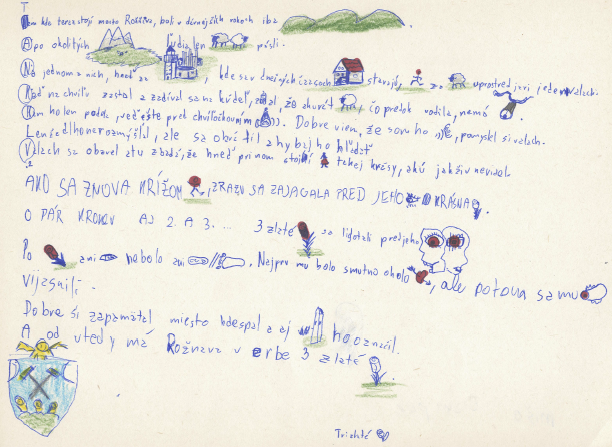 Tam kde teraz stojí mesto Rožňava, boli v dávnejších rokoch iba .
A po okolitých ľudia len pásli.
Na jednom z nich, hneď za kde sa v dnešných časoch stavajú, uprostred jari jeden valach.
Keď na chvíľu zostal a zadíval sa na kŕdeľ, že akurát, čo predok vodila, nemá .
Kam ho len podela, veď ešte pred chvíľočkou ním . Dobre viem, že som ho, pomyslel si valach.
Len sa obrátil a hybaj ho hľadať
Valach sa obzrel a tu zbadá, že hneď pri ňom stojí takej krásy, akú jakživ nevidel.
AKO SA ZNOVA KRÍŽOM , ZRAZU SA ZAJAGALA PRED JEHO KRÁSNA .
O PÁR KROKOV AJ 2. A 3. ... 3 zlaté sa ligotali pred jeho
Po ani nebolo ani . Najprv mu bolo smutno okolo , ale potom sa mu
vyjasnili.
Dobre si zapamätal miesto kde spal a aj ho označil.
A od vtedy má Rožňava v erbe 3 zlaté .